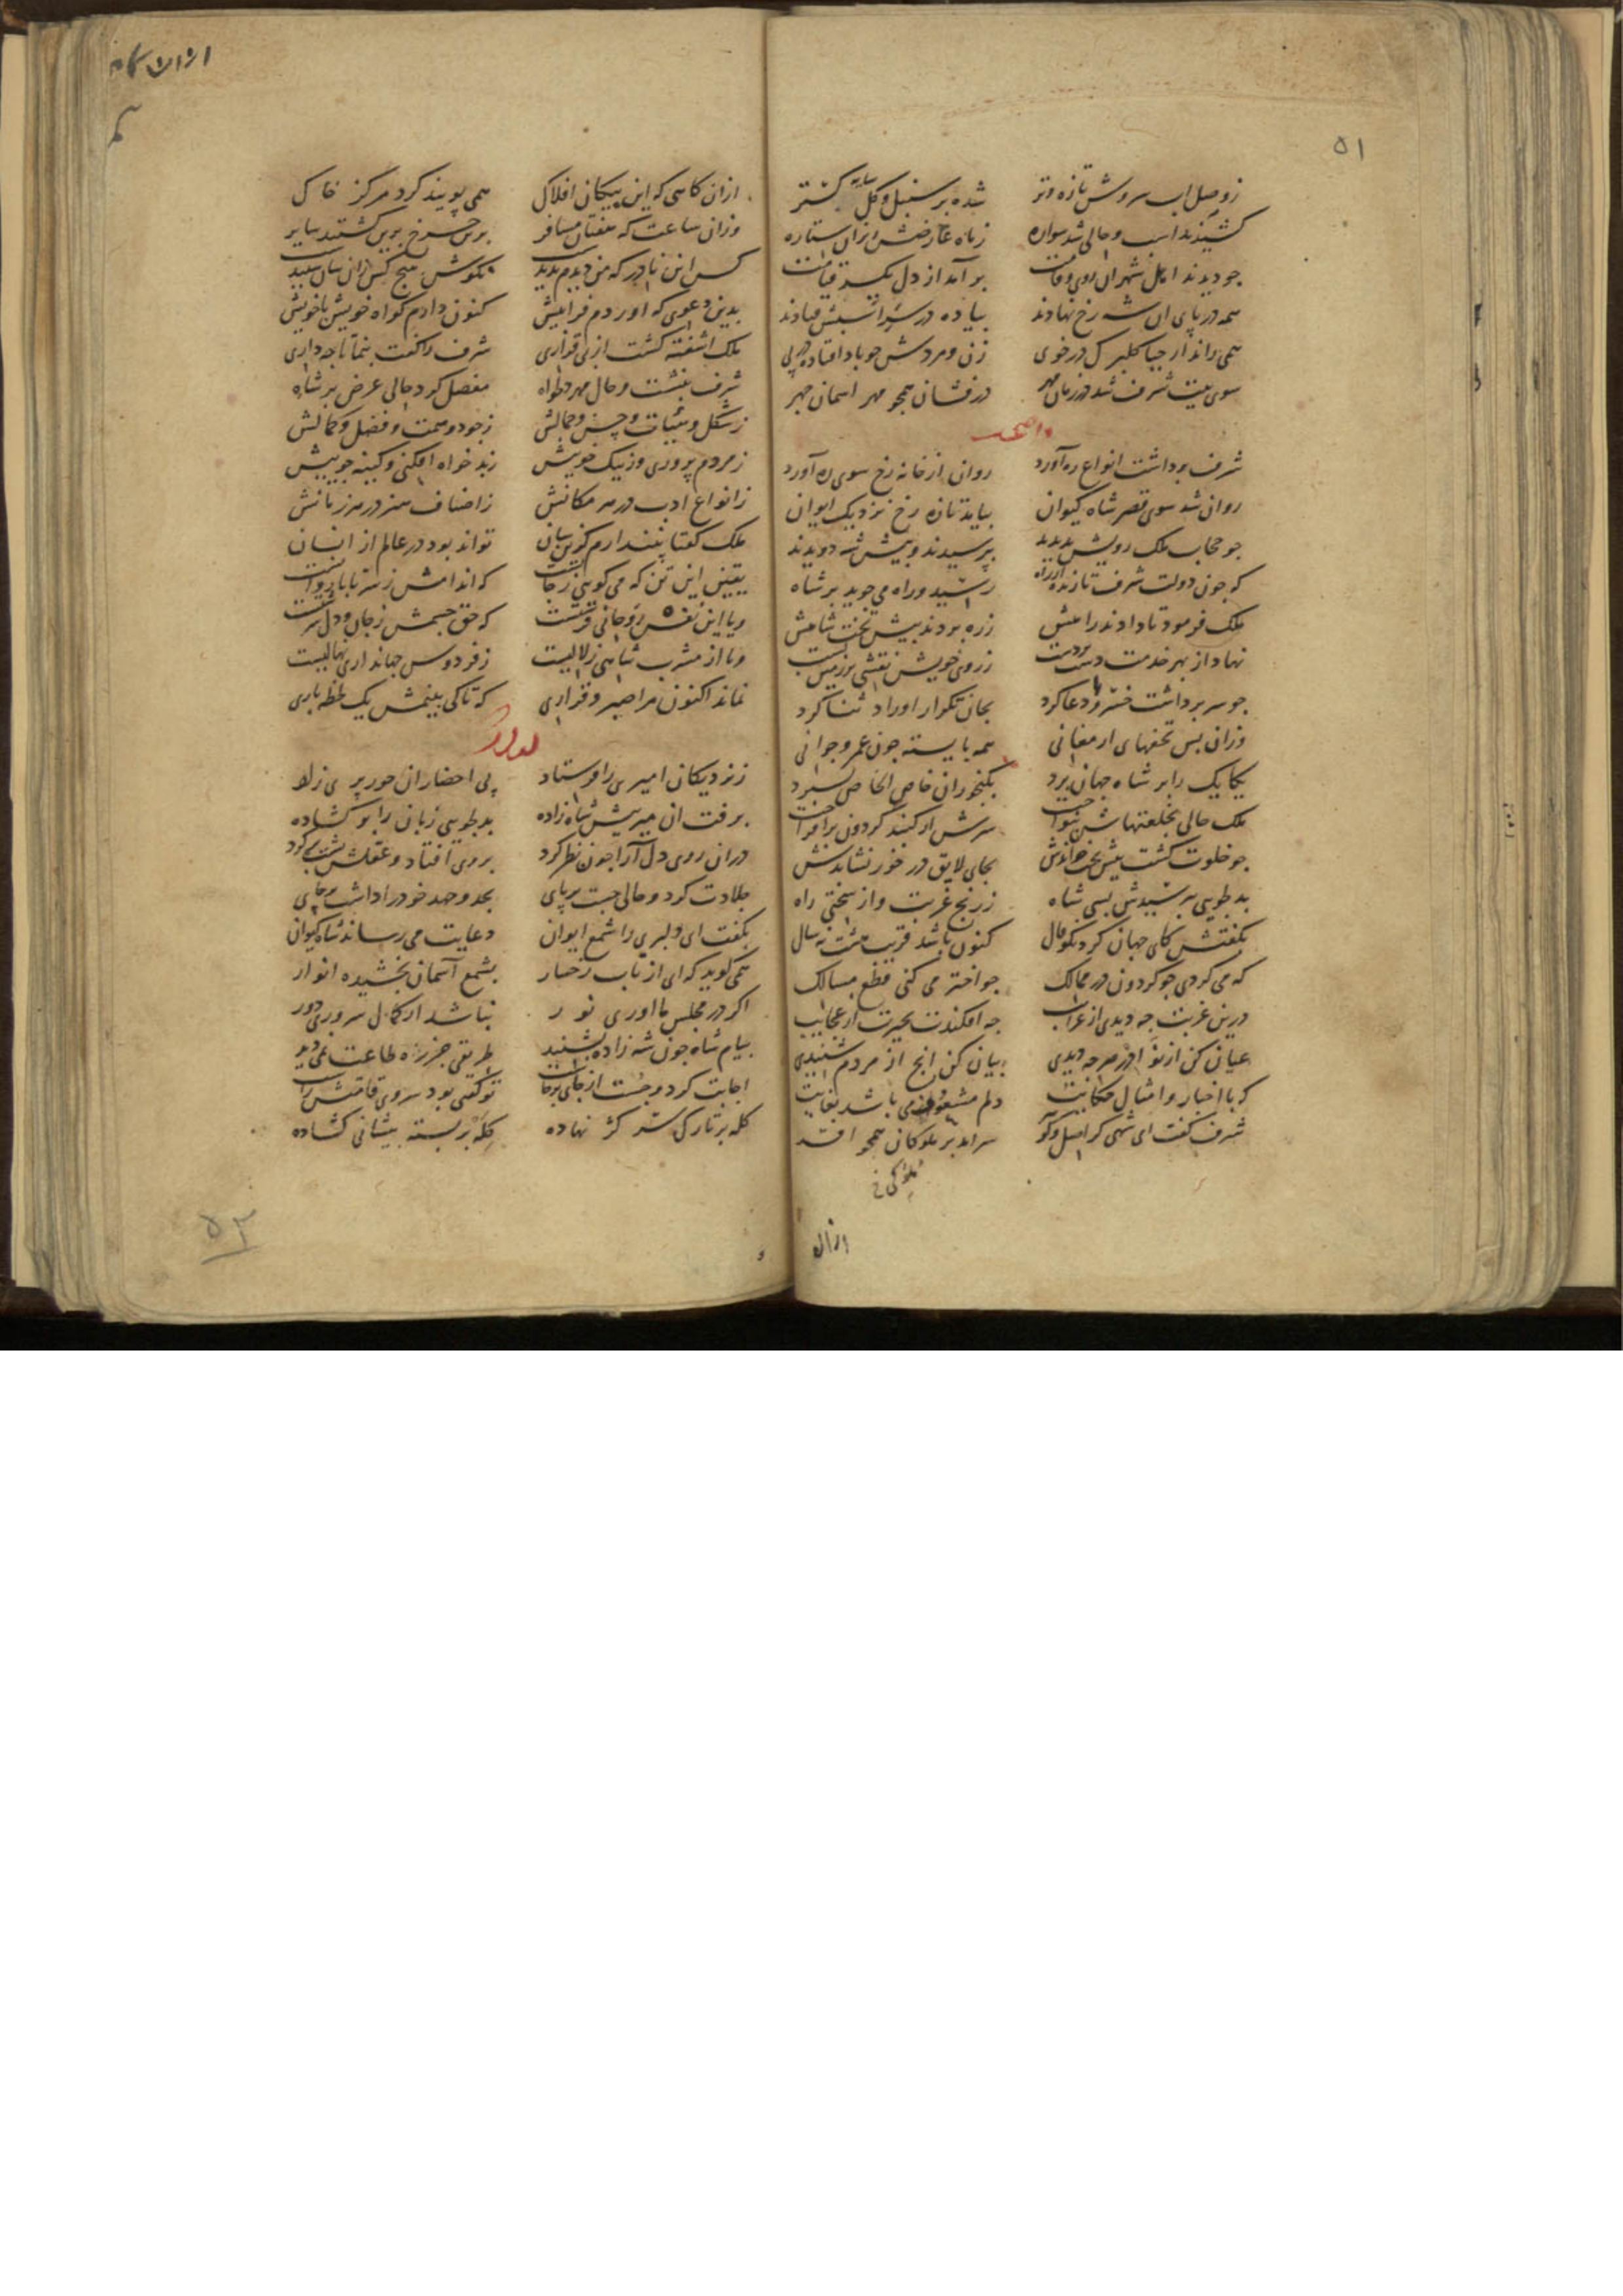 ۵۱
ز وصل لب سروش تازه و تر شده بر سنبل و گل سایه گستر
کشیدند اسب و حالی شد سواره ز ماه عارضش ریزان ستاره
جو دیدند اهل شهر ان روی و قامت بر آمد از دل یکسر قیامت
همه در پای ان شه رخ نهادند بیاده در سر اسبش فتادند
همی راند از حیا کلبرک در خوی زن و مردش جو باد افتاده در پی
سوی بیت شرف شد در زمان مهر درفشان همجو مهر اسمان جهر
شرف برداشت انواع ره آورد روان از خانه رخ سوی ره آورد
روان شد سوی قصر شاه کیوان بیامد تازه رخ نزدیک ایوان
جو حجاب ملک رویش بدیدند بپرسیدند و بیش شه دویدند
که جون دولت شرف تازنده از راه رسید و راه می جوید بر شاه
ملک فرمود تا دادند راهش ز ره بردند بیش تخت شاهش
نهاد از بهر خدمت دست بر دست ز روی خویش نقشی بر زمین بست
جو سر برداشت خسرو را دعا کرد بجان تکرار اوراد ثنا کرد
وزان بس تحفهای ارمغانی همه بایسته جون عمر و جوانی
یکایک را بر شاه جهان برد بکنجوران خاص الخاص بسبرد
ملک حالی بخلعتهاش بنواخت سرش از کنبد کردون برافراخت
جو خلوت کشت بیش تخت خواندش بجای لایق در خور نشاندش
بدلجویی ببرسیدش بسی شاه ز رنج غربت و از سختی راه
بکفتش کای جهان کرد نکوفال کنون باشد قریب هشت نه سال
که می کردی جو کردون در ممالک جو اختر می کنی قطع مسالک
درین غربت جه دیدی از غرایب جه افکندت بحیرت از عجایب
عیان کن از نوادر هر جه دیدی بیان کن انج از مردم شنیدی
که با اخبار و امثال و حکایت دلم مشعوف می باشد بغایت
شرف کفت ای شهی کز اصل و کوهر سر اید بر ملوکان همجو افسر
ازان
ازان کاهی که این بیکان افلاک همی پویند کرد مرکز خاک
وزان ساعت که هفتان مسافر برین جرخ برین کشتند سایر
کس این نادر که من دیدم ندید بکوش هیج کس زان سان رسید
بدین دعوی که اوردم فرا بیش کنون دارم کواه خویش با خویش
ملک اشفته کشت از بی قراری شرف را کفت بنما تا جه داری
شرف بنشست و حال مهر دلخواه مفصل کرد حالی عرض بر شاه
ز شکل و هیئات و حسن و جمالش ز جود و همت و فضل و کمالش
ز مردم پروری وز نیک خویش ز بدخواه افکنی و کینه جوییش
ز انواع ادب در هر مکانش ز اصناف هنر در هر زبانش
ملک کفتا نبندارم کزین سان تواند بود در عالم از انسان
یقین این تن که می کویی ز جانست که اندامش ز سر تا با روانست
و یا این نفس روحانی فرشتست که حق جسمش ز جان و دل سرشتست
و یا از مشرب شاهی زلالیست ز فردوس جهانداری نهالیست
نماند اکنون مرا صبر و قراری که تا کی بینمش یک لحظه باری
ز نزدیکان امیری را فرستاد پی احضار ان حور پری زاد
برفت ان میر بیش شاه زاده بدلجویی زبان را بر کشاده
دران روی دل آرا جون نظر کرد بروی افتاد و عقلش بشت بر کرد
جلادت کرد و حالی جست بر پای بجد و جهد خود را داشت بر جای
بکفت ای دلبری را شمع ایوان دعایت می رساند شاه کیوان
همی کوید که ای از تاب رخسار بشمع آسمان بخشیده انوار
اکر در مجلس ما اوری نور نباشد از کمال سروری دور
بیام شاه جون شه زاده بشنید طریقی جز ره طاعت نمی دید
اجابت کرد و جست از جای برخاست تو کفتی بود سروی قامتش راست
کله بر تارک سر کژ نهاده کله بر بسته بیشانی کشاده
۵۲